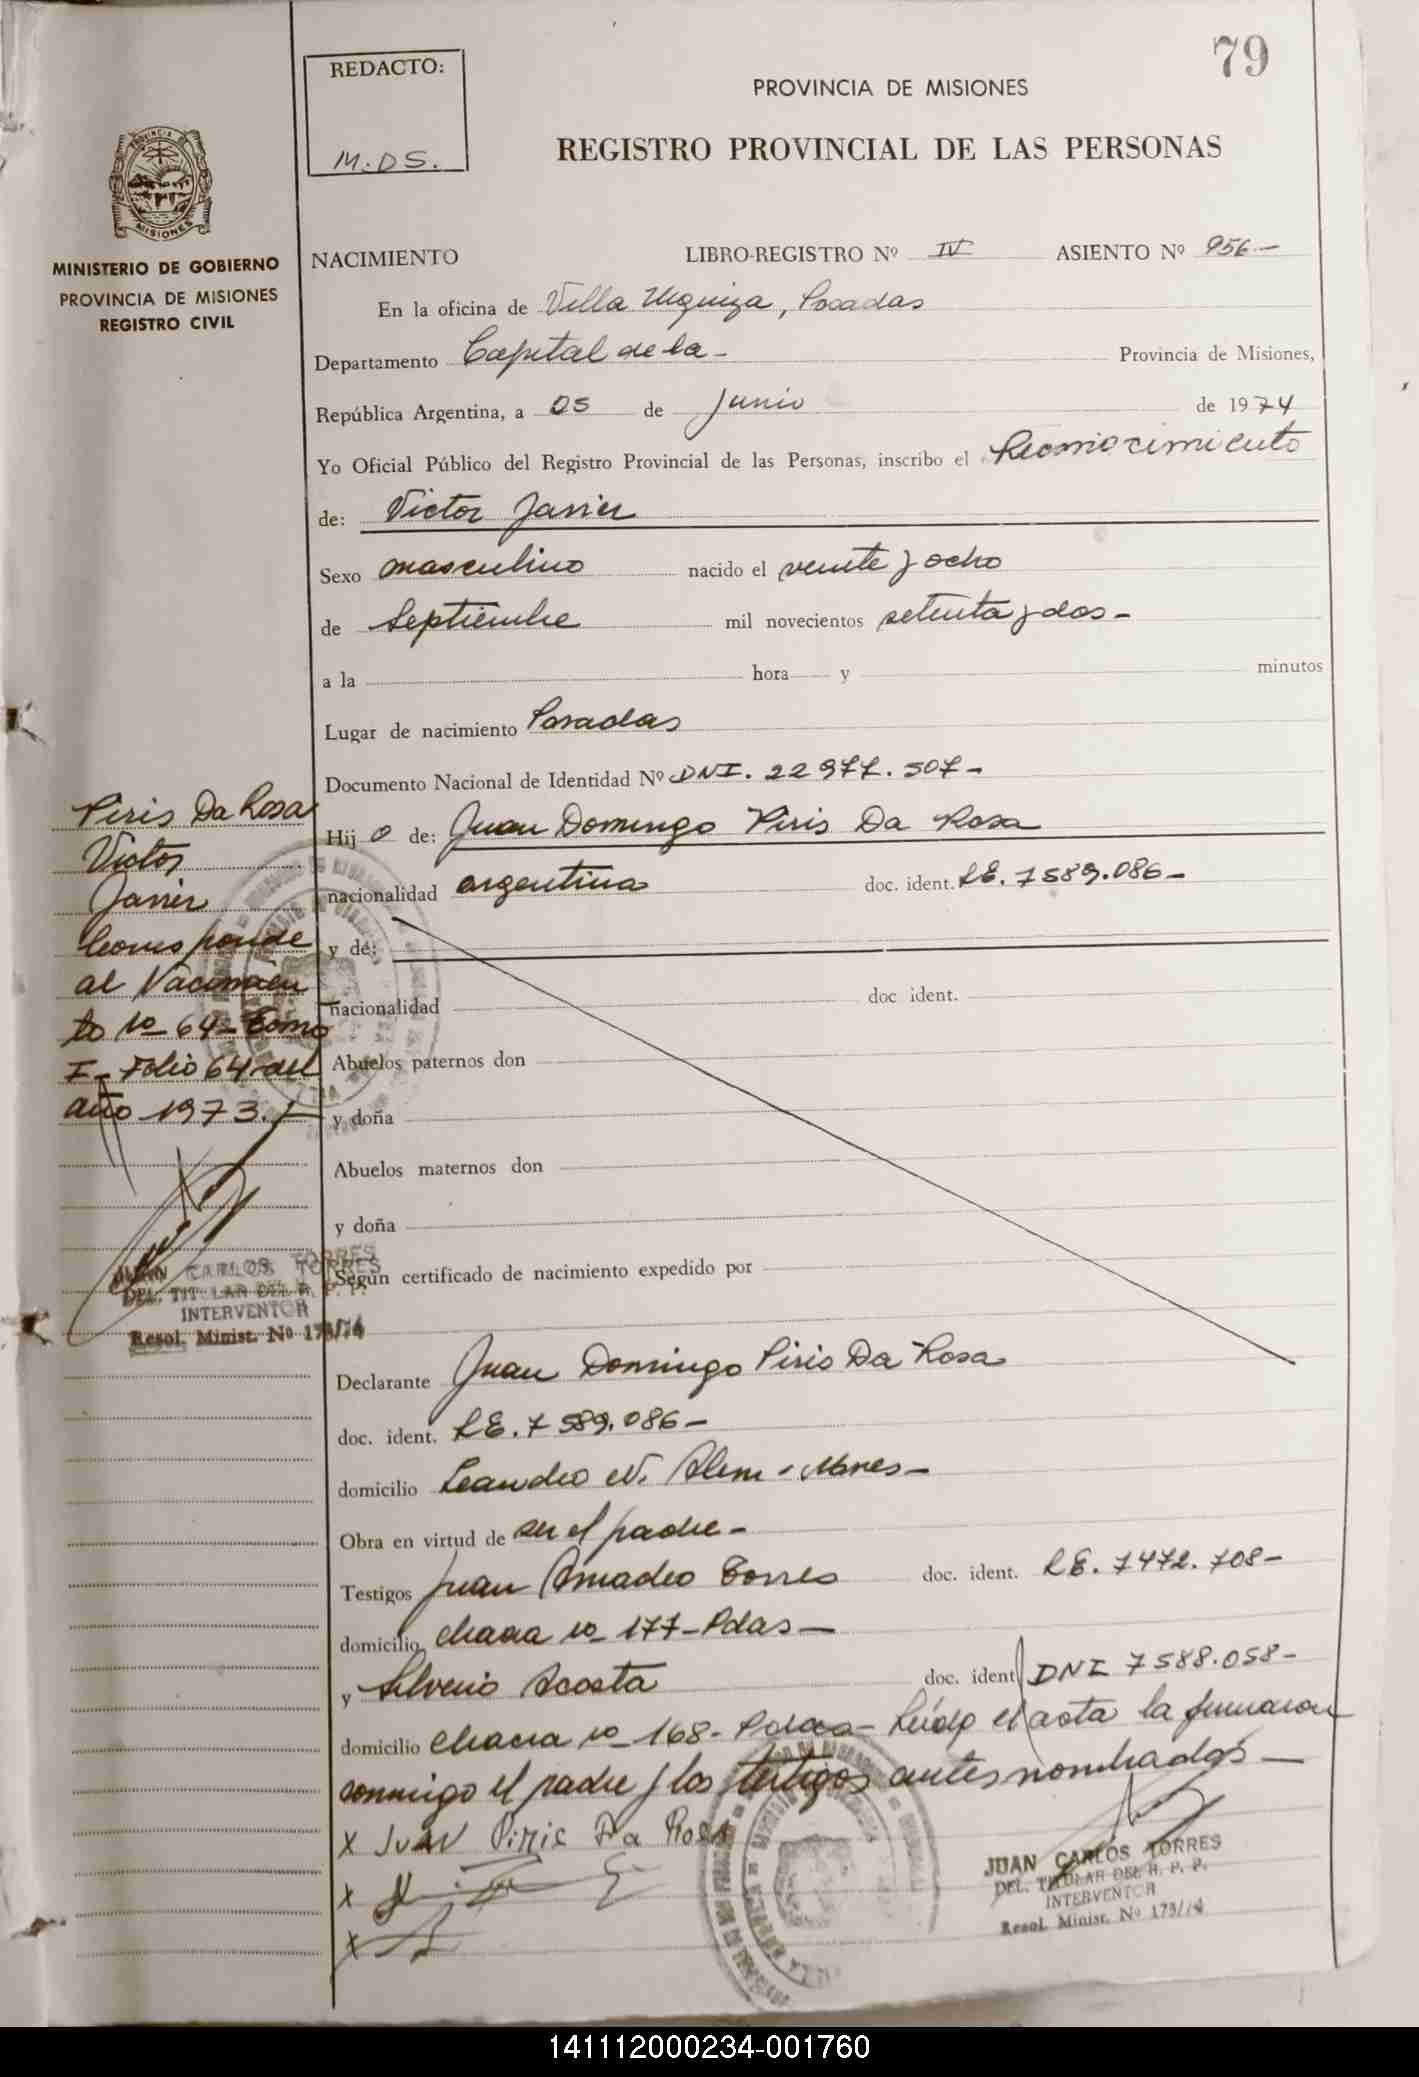 79
REDACTO:
M.DS.
PROVINCIA DE MISIONES
REGISTRO PROVINCIAL DE LAS PERSONAS
PROVINCIA DE
MISIONES
MINISTERIO DE GOBIERNO
PROVINCIA DE MISIONES
REGISTRO CIVIL
NACIMIENTO LIBRO-REGISTRO Nº IV ASIENTO Nº 956-
En la oficina de Villa Urquiza, Posadas
Departamento Capital de la - Provincia de Misiones,
República Argentina, a 05 de Junio de 1974
Yo Oficial Público del Registro Provincial de las Personas, inscribo el Reconocimiento
de: Victor Javier
Sexo masculino nacido el veinte y ocho
de Septiembre mil novecientos setenta y dos -
a la hora y minutos
Lugar de nacimiento Posadas
Documento Nacional de Identidad Nº DNI. 22.977.507-
Hijo de: Juan Domingo Piris Da Rosa
nacionalidad argentina doc. ident. LE. 7589.086-
y de:
nacionalidad doc ident.
Abuelos paternos don
y doña
Abuelos maternos don
y doña
Según certificado de nacimiento expedido por
Declarante Juan Domingo Piris Da Rosa
doc. ident. LE. 7589.086-
domicilio Leandro N. Alem - Mnes-
Obra en virtud de ser el padre-
Testigos Juan Amadeo Torres doc. ident. LE. 7472.708-
domicilio chacra nº 177-Pdas-
y Silverio Acosta doc. ident DNI 7588.058-
domicilio chacra nº 168- Pdas- Leído el acta la firmaron
conmigo el padre y los testigos antes nombrados-
x JUAN PiRiS Da RoSa
x
x
Piris Da Rosa
Victor
Javier
Corresponde
al Nacimien
to nº 64-Tomo
I-Folio 64 del
año 1973.
JUAN CARLOS TORRES
DEL. TITULAR DEL R. P. P.
INTERVENTOR
Resol. Minist. Nº 173/74
JUAN CARLOS TORRES
DEL. TITULAR DEL R. P. P.
INTERVENTOR
Resol. Minist. Nº 173/74
141112000234-001760